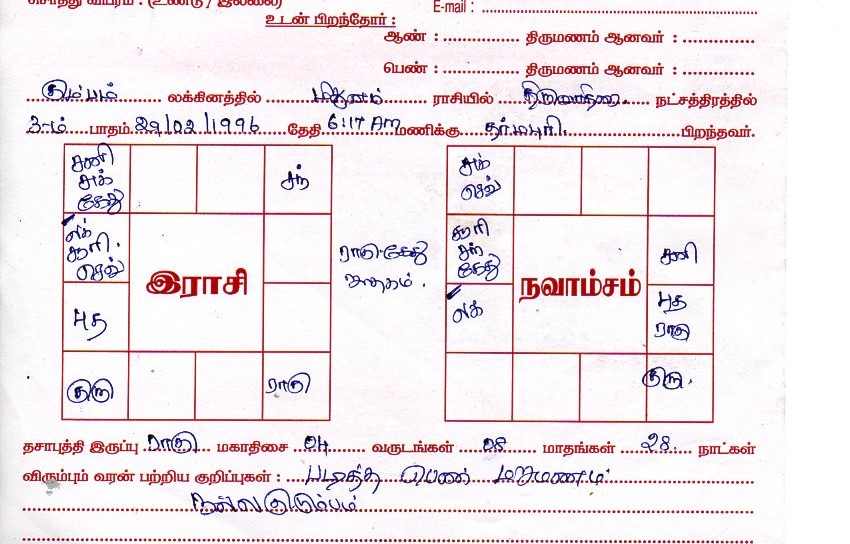 சொத்து விபரம் : (உண்டு / இல்லை) E-mail :
உடன் பிறந்தோர் :
ஆண் : திருமணம் ஆனவர் :
பெண் : திருமணம் ஆனவர் :
கும்பம் லக்கினத்தில் மிதுனம் ராசியில் திருவாதிரை நட்சத்திரத்தில்
3-ம் பாதம் 29/02/1996 தேதி 6:17 Am மணிக்கு தர்மபுரி பிறந்தவர்.
சனி சுக் கேது சந் சுக் செவ்
லக் சூரி. செவ் இராசி ராகு கேது ஜாதகம். சூரி சந் கேது நவாம்சம் சனி
புத லக் புத ராகு
குரு ராகு குரு.
தசாபுத்தி இருப்பு ராகு மகாதிசை 04 வருடங்கள் 08 மாதங்கள் 28 நாட்கள்
விரும்பும் வரன் பற்றிய குறிப்புகள் : படித்த பெண் மறுமணம்
நல்ல குடும்பம்